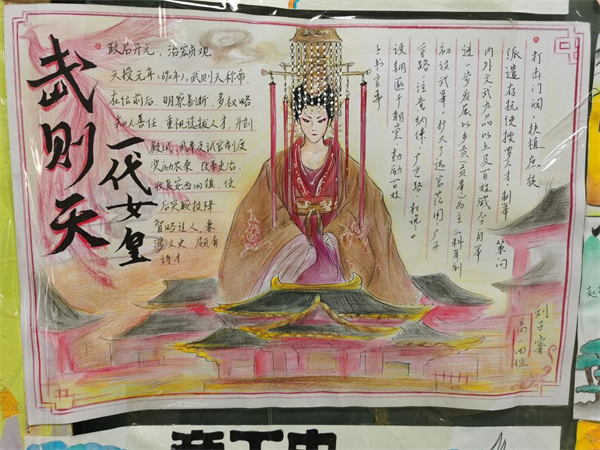 武则天
一代女皇
政启开元,治宏贞观
天授元年(690年),武则天称帝.
在位前后,明察善断,多权略
知人善任,重视选拔人才,开创
殿试,武举及试官制度
奖励农桑,改革吏治.
收复安西四镇,使
后突厥投降
智略过人,兼
涉文史,颇有
诗才
打击门阀,扶植庶族
派遣存抚使搜罗人才,制举 策问
内外文武九品以上及百姓咸令自举
进一步发展以乡贡(贡举)为主的科举制
初设武举,扩大了选官范围,广开
言路,注意纳谏.“广言路,杜谗口”
设铜匦于朝堂 劝励百姓
上书言事
刘子
高一四班